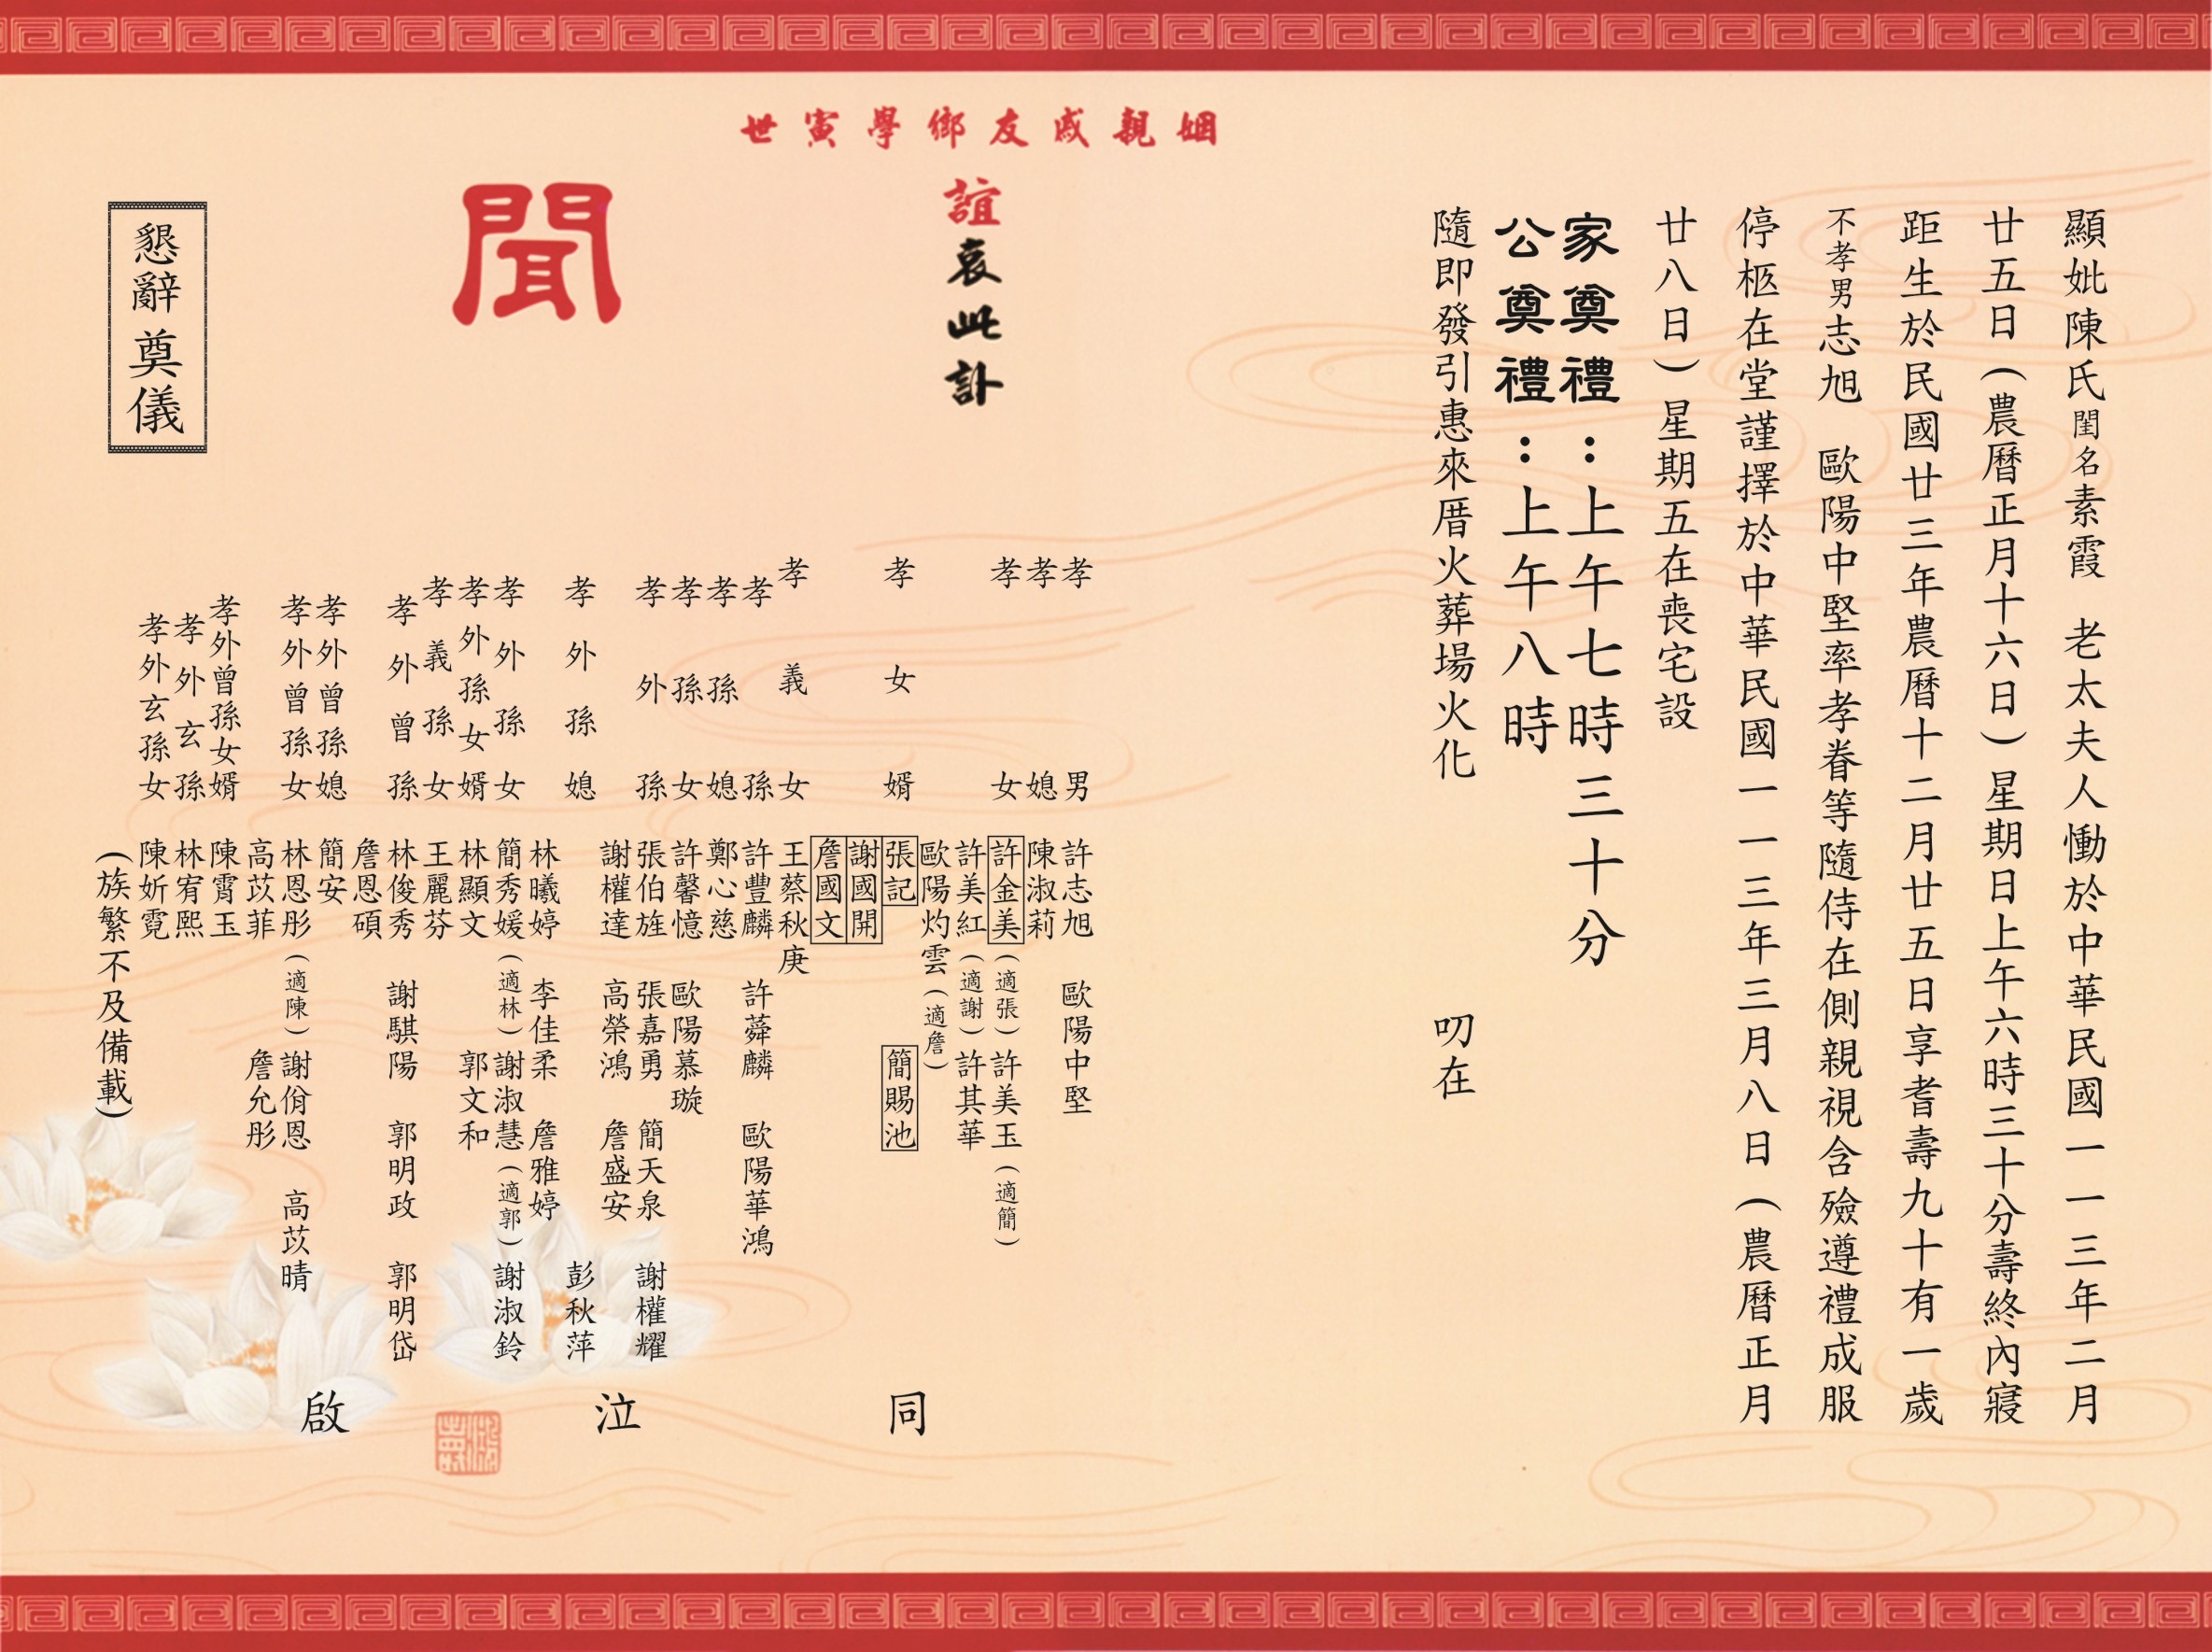 顯妣陳氏閨名素霞　老太夫人慟於中華民國一一三年二月
廿五日(農曆正月十六日)星期日上午六時三十分壽終內寢
距生於民國廿三年農曆十二月廿五日享耆壽九十有一歲
不孝男志旭　歐陽中堅率孝眷等隨侍在側親視含殮遵禮成服
停柩在堂謹擇於中華民國一一三年三月八日(農曆正月
廿八日)星期五在喪宅設
家奠禮:上午七時三十分
公奠禮:上午八時
隨即發引惠來厝火葬場火化　叨在
姻親戚友鄉學寅世
誼哀此訃
聞
孝男　許志旭　歐陽中堅
孝媳　陳淑莉
孝女　許金美(適張)許美玉(適簡)
許美紅(適謝)許其華
歐陽灼雲(適詹)
孝女婿　張記　簡賜池
謝國開
詹國文
孝義女　王蔡秋庚
孝孫　許豐麟　許蕣麟　歐陽華鴻
孝孫媳　鄭心慈
孝孫女　許馨憶　歐陽慕璇
孝外孫　張伯旌　張嘉勇　簡天泉　謝權耀
謝權達　高榮鴻　詹盛安
孝外孫媳　彭秋萍
林曦婷　李佳柔　詹雅婷
孝外孫女　簡秀媛(適林)謝淑慧(適郭)謝淑鈴
孝外孫女婿　林顯文　郭文和
孝義孫女　王麗芬
孝外曾孫　林俊秀　謝騏陽　郭明政　郭明岱
詹恩碩
孝外曾孫媳　簡安
孝外曾孫女　林恩彤(適陳)謝佾恩　高苡晴
高苡菲　詹允彤
孝外曾孫女婿　陳霄玉
孝外玄孫　林宥熙
孝外玄孫女　陳妡霓
(族繁不及備載)
同泣啟
懇辭奠儀